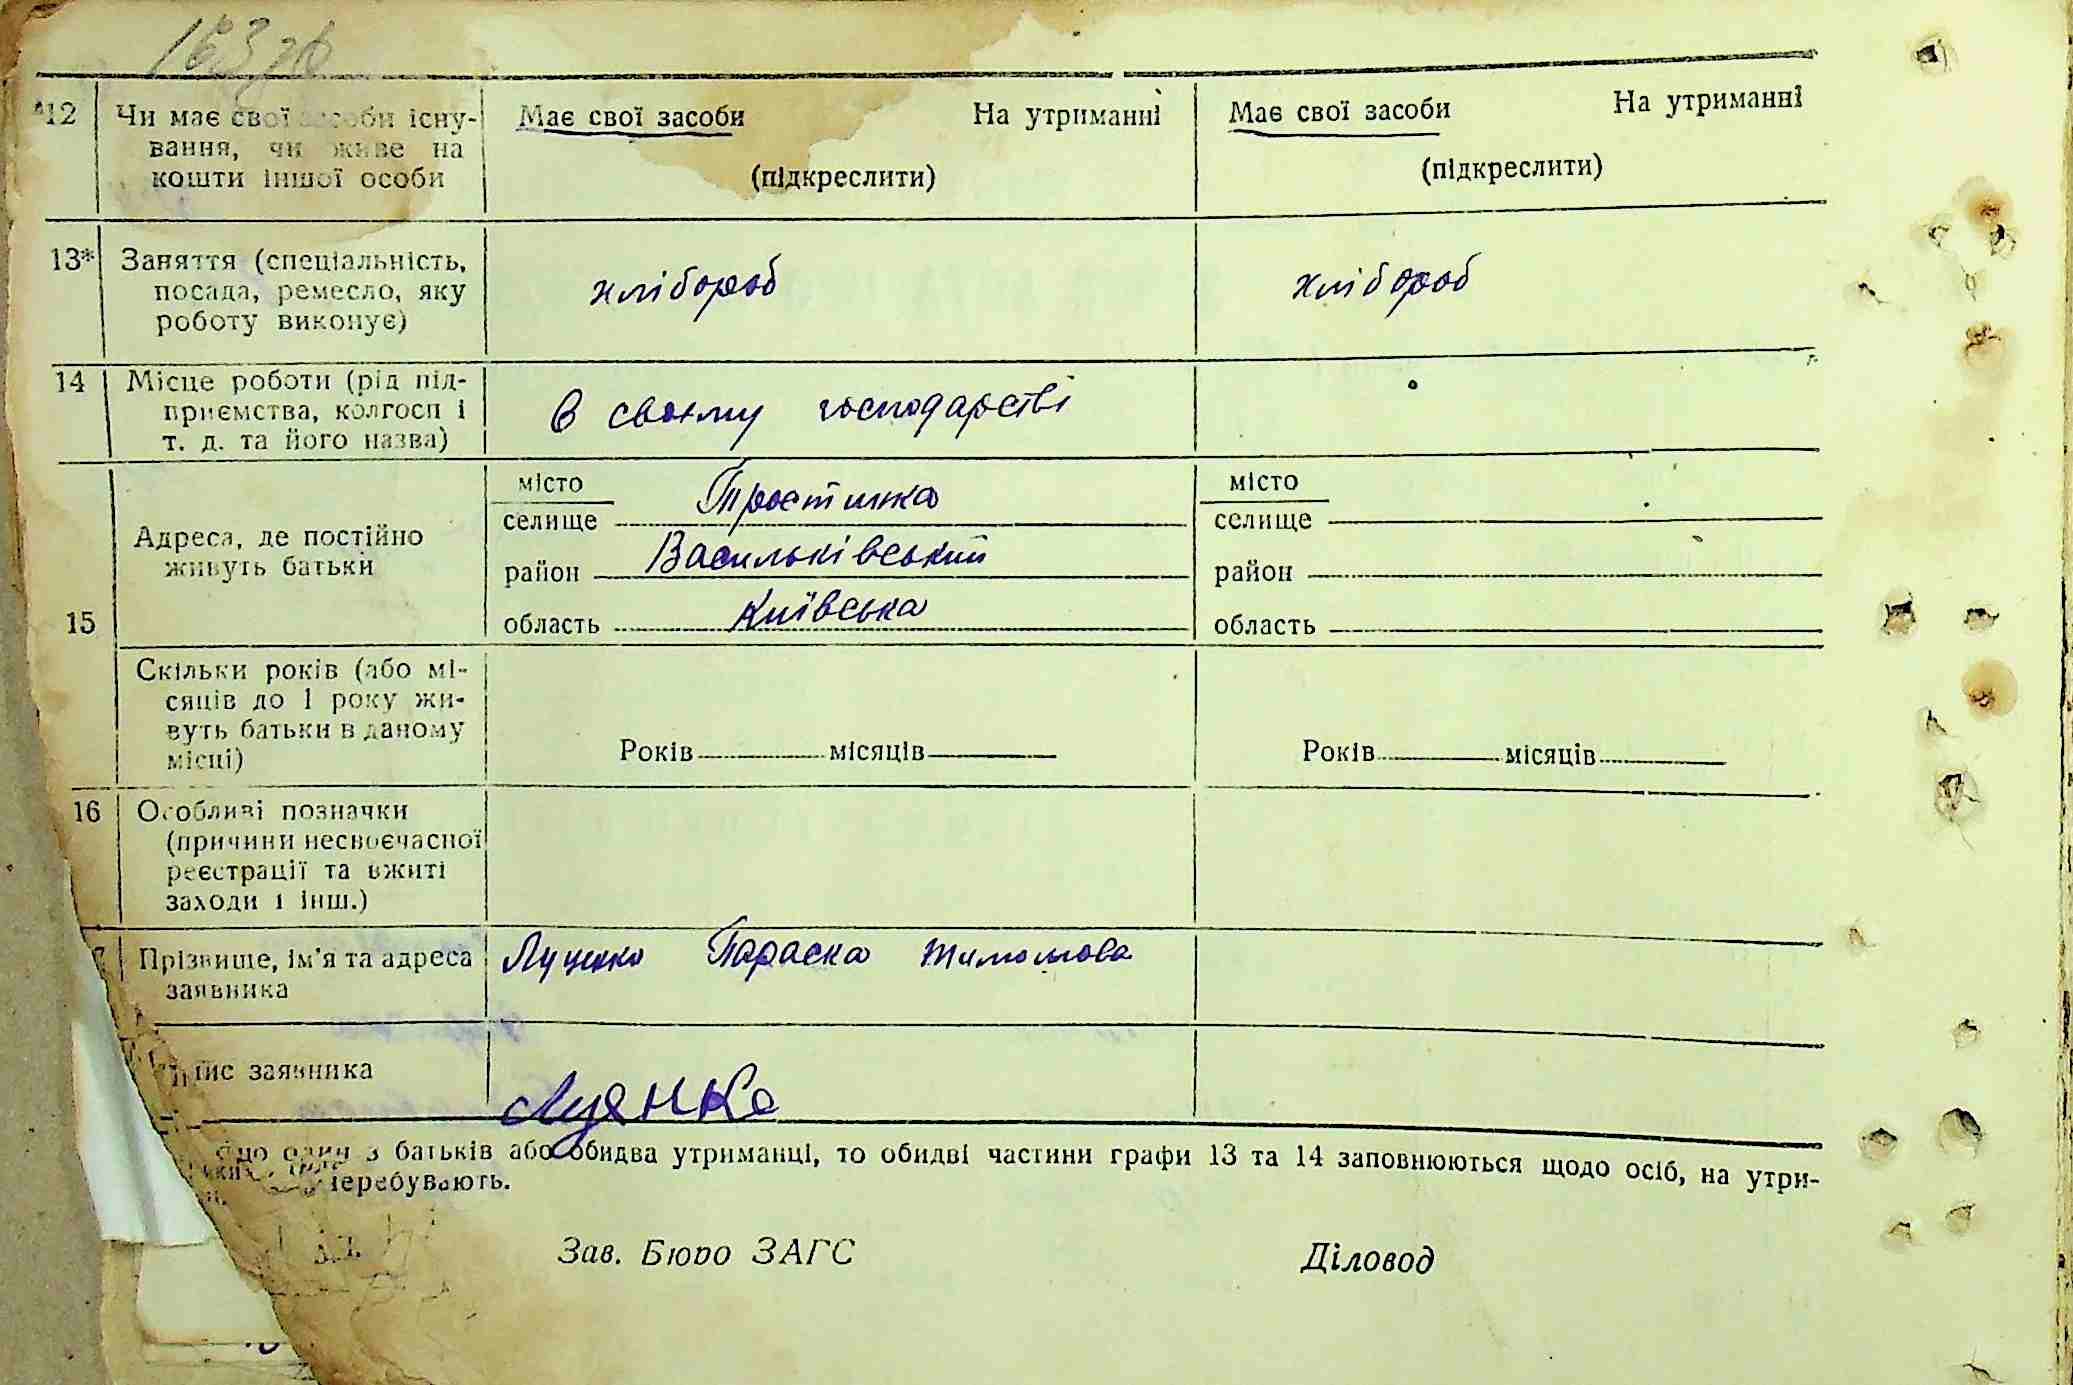 163 зв
12 Чи має свої засоби існу- Має свої засоби На утриманні Має свої засоби На утриманні
вання, чи живе на
кошти іншої особи (підкреслити) (підкреслити)
13* Заняття (спеціальність,
посада, ремесло, яку хлібороб хлібороб
роботу виконує)
14 Місце роботи (рід під-
приємства, колгосп і в своєму господарстві
т. д. та його назва)
місто Тростинка місто
селище селище
Адреса, де постійно
живуть батьки
район Васильківський район
15
область Київська область
Скільки років (або мі-
сяців до 1 року жи-
вуть батьки в даному
місці) Років місяців Років місяців
16 Особливі позначки
(причини несвоєчасної
реєстрації та вжиті
заходи і інш.)
7 Прізвище, ім'я та адреса Луценко Параска
заявника
пис заявника
з батьків або обидва утриманці, то обидві частини графи 13 та 14 заповнюються щодо осіб, на утри-
перебувають.
Зав. Бюро ЗАГС Діловод